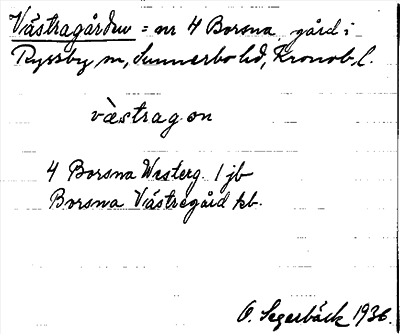 Västragården = nr 4 Borsna, gård i
Ryssby sn, Sunnerbo hd, Kronob. l.
västragon
4 Borsna Westerg. 1 jb
Borsna Västregård kb.
O. Segerbäck 1936.